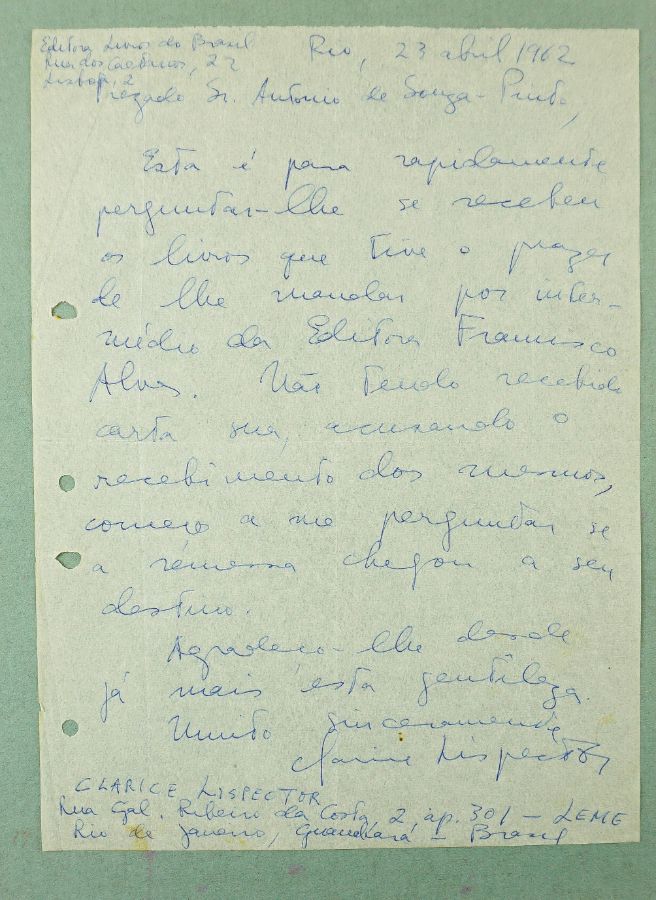 Editora Livros do Brasil
Rua dos Caetanos, 22
Lisboa, 2
Rio, 23 abril 1962
Prezado Sr. Antonio de Souza-Pinto,
Esta é para rapidamente
perguntar-lhe se recebeu
os livros que tive o prazer
de lhe mandar por inter-
médio da Editora Francisco
Alves. Não tendo recebido
carta sua, acusando o
recebimento dos mesmos,
começo a me perguntar se
a remessa chegou a seu
destino.
Agradeço-lhe desde
já mais esta gentileza.
Muito sinceramente
Clarice Lispector
CLARICE LISPECTOR
Rua Gal. Ribeiro da Costa, 2, ap. 301 - LEME
Rio de Janeiro, Guanabara - Brasil